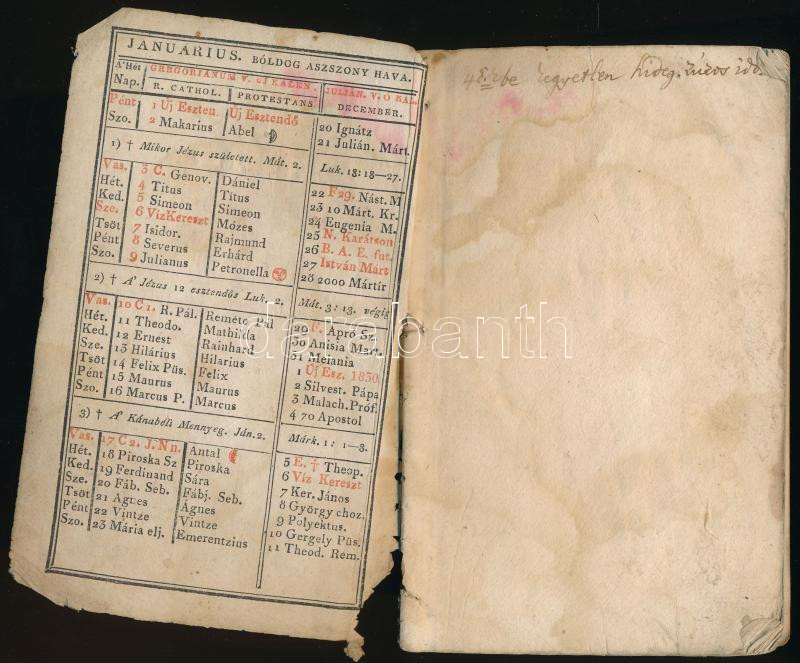 JANUARIUS. BÓLDOG ASZSZONY HAVA.
A' Hét Nap. GREGORIANUM V. UJ KALEN. JULIÁN. V. Ó KAL.
R. CATHOL. PROTESTANS. DECEMBER.
Pént 1 Uj Eszten. Uj Esztendő 20 Ignátz
Szo. 2 Makarius Abel 21 Julián. Márt.
1) † Mikor Jézus született. Mát. 2. Luk. 18: 18—27.
Vas. 3 C. Genov. Dániel 22 F 29. Nást. M
Hét. 4 Titus Titus 23 10 Márt. Kr.
Ked. 5 Simeon Simeon 24 Eugenia M.
Sze. 6 Víz Kereszt Mózes 25 N. Karátson
Tsöt 7 Isidor. Rajmund 26 B. A. E. fut.
Pént 8 Severus Erhárd 27 István Márt
Szo. 9 Julianus Petronella 28 2000 Mártír
2) † A' Jézus 12 esztendős Luk. 2. Mát. 3: 13. végig
Vas. 10 C 1. R. Pál. Remete Pál 29 F. Apró Sz.
Hét. 11 Theodo. Mathilda 30 Anisia Mart.
Ked. 12 Ernest Rainhard 31 Melania
Sze. 13 Hilárius Hilarius 1 Uj Esz. 1830
Tsöt 14 Felix Püs. Felix 2 Silvest. Pápa
Pént 15 Maurus Maurus 3 Malach. Próf.
Szo. 16 Marcus P. Marcus 4 70 Apostol
3) † A' Kánabéli Mennyeg. Ján. 2. Márk. 1: 1—8.
Vas. 17 C 2. J. Nn. Antal 5 E. † Theop.
Hét. 18 Piroska Sz Piroska 6 Víz Kereszt
Ked. 19 Ferdinand Sára 7 Ker. János
Sze. 20 Fáb. Seb. Fábj. Seb. 8 György choz.
Tsöt 21 Agnes Ágnes 9 Polyektus.
Pént 22 Vintze Vintze 10 Gergely Püs.
Szo. 23 Mária elj. Emerentzius 11 Theod. Rem.
hideg
darabanth